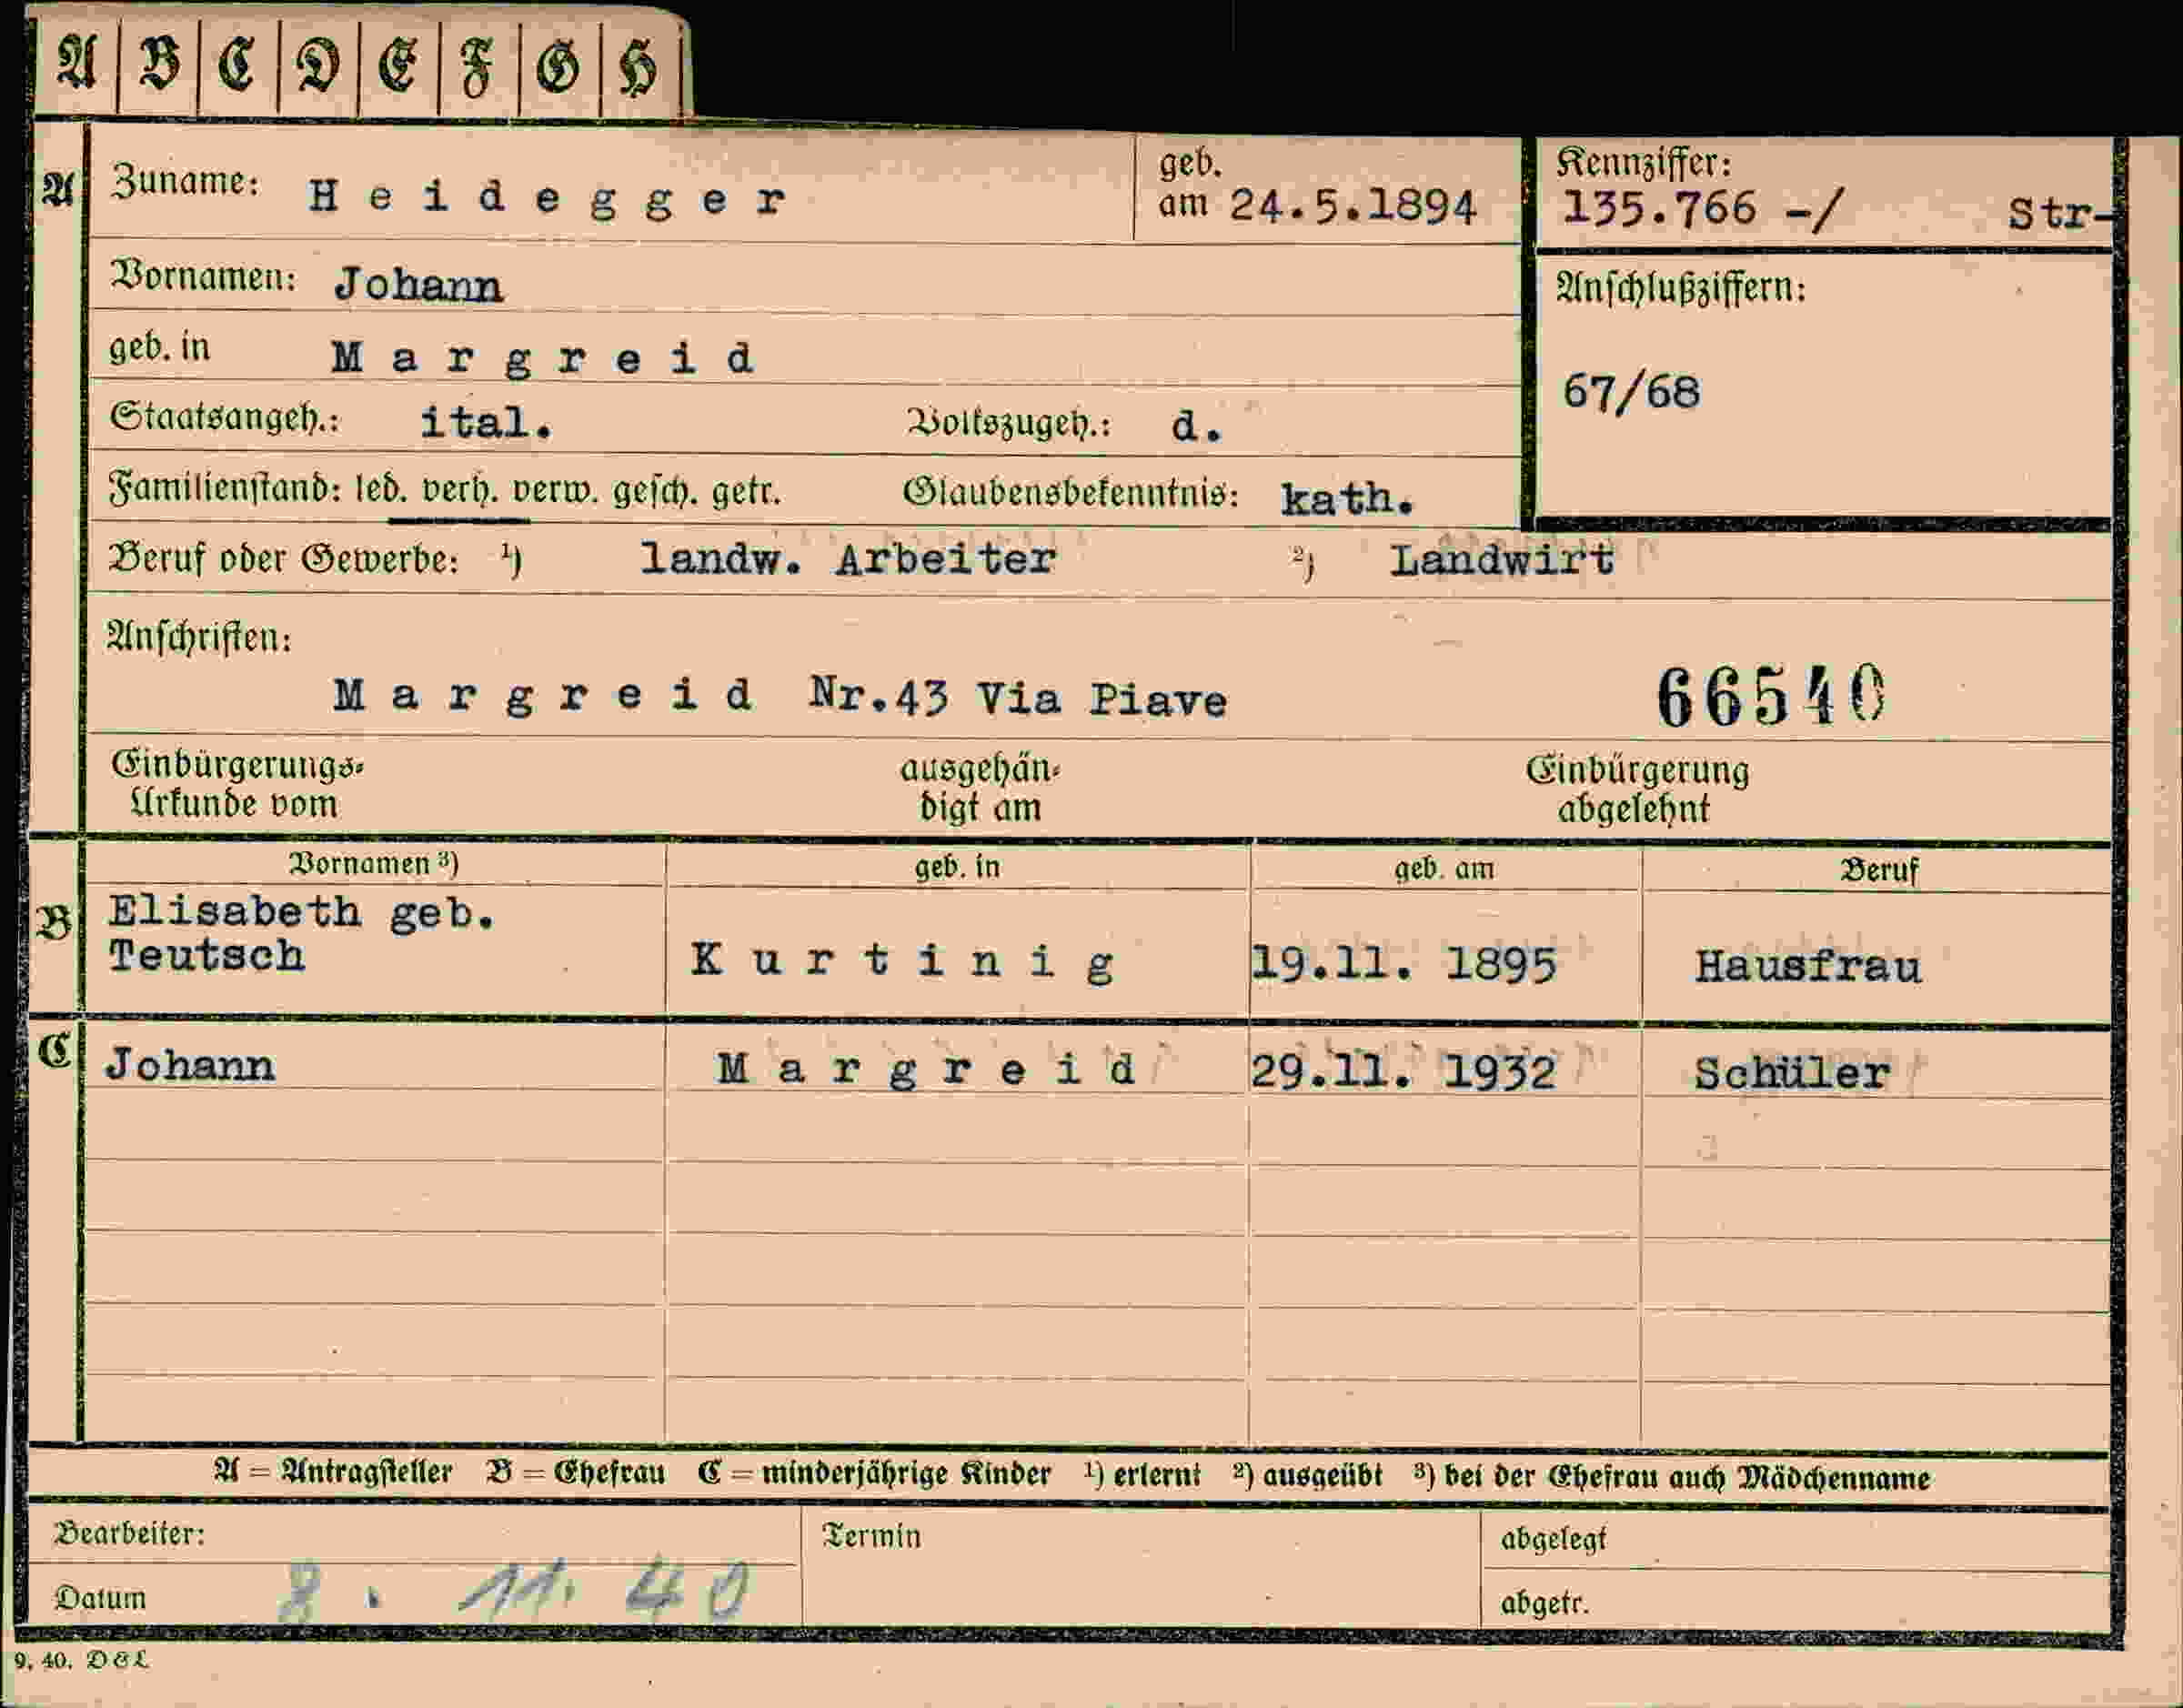 A B C D E F G H
A Zuname: Heidegger geb. am 24.5.1894 Kennziffer: 135.766 -/ Str-
Vornamen: Johann Anschlußziffern:
geb. in Margreid 67/68
Staatsangeh.: ital. Volkszugeh.: d.
Familienstand: led. verh. verw. gesch. getr. Glaubensbekenntnis: kath.
Beruf oder Gewerbe: ¹) landw. Arbeiter ²) Landwirt
Anschriften:
Margreid Nr.43 Via Piave 66540
Einbürgerungs- ausgehän- Einbürgerung
Urkunde vom digt am abgelehnt
Vornamen ³) geb. in geb. am Beruf
B Elisabeth geb.
Teutsch Kurtinig 19.11. 1895 Hausfrau
C Johann Margreid 29.11. 1932 Schüler
A = Antragsteller B = Ehefrau C = minderjährige Kinder ¹) erlernt ²) ausgeübt ³) bei der Ehefrau auch Mädchenname
Bearbeiter: Termin abgelegt
Datum 8. 11. 40 abgetr.
9. 40. D & L